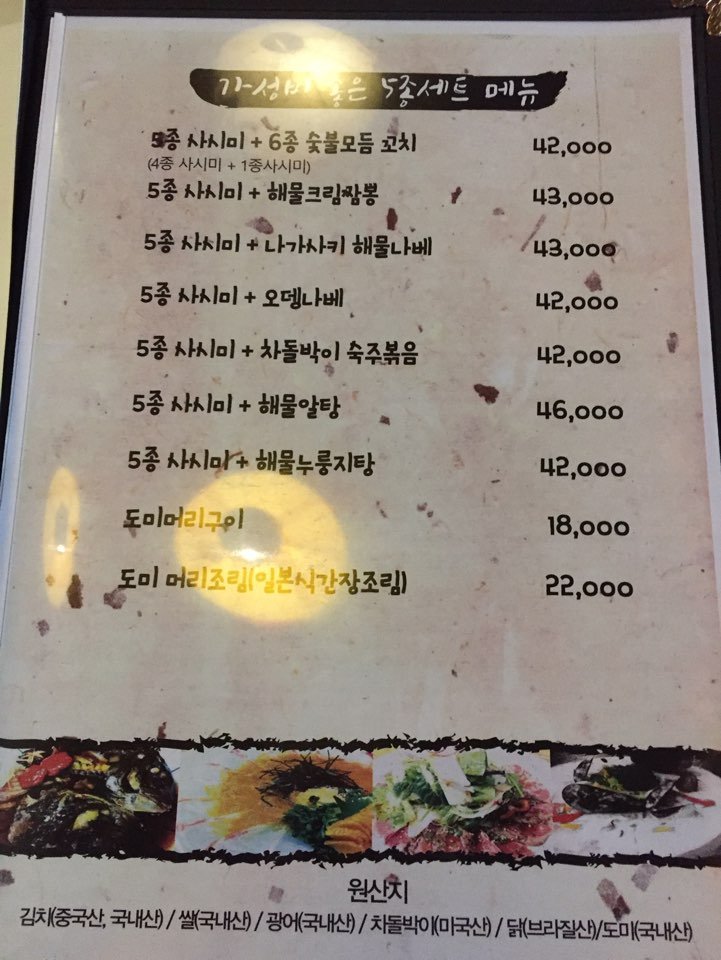 가성비 좋은 5종세트 메뉴
5종 사시미 + 6종 숯불모듬 꼬치 42,000
(4종 사시미 + 1종사시미)
5종 사시미 + 해물크림짬뽕 43,000
5종 사시미 + 나가사키 해물나베 43,000
5종 사시미 + 오뎅나베 42,000
5종 사시미 + 차돌박이 숙주볶음 42,000
5종 사시미 + 해물알탕 46,000
5종 사시미 + 해물누룽지탕 42,000
도미머리구이 18,000
도미 머리조림(일본식간장조림) 22,000
원산지
김치(중국산, 국내산) / 쌀(국내산) / 광어(국내산) / 차돌박이(미국산) / 닭(브라질산)/도미(국내산)